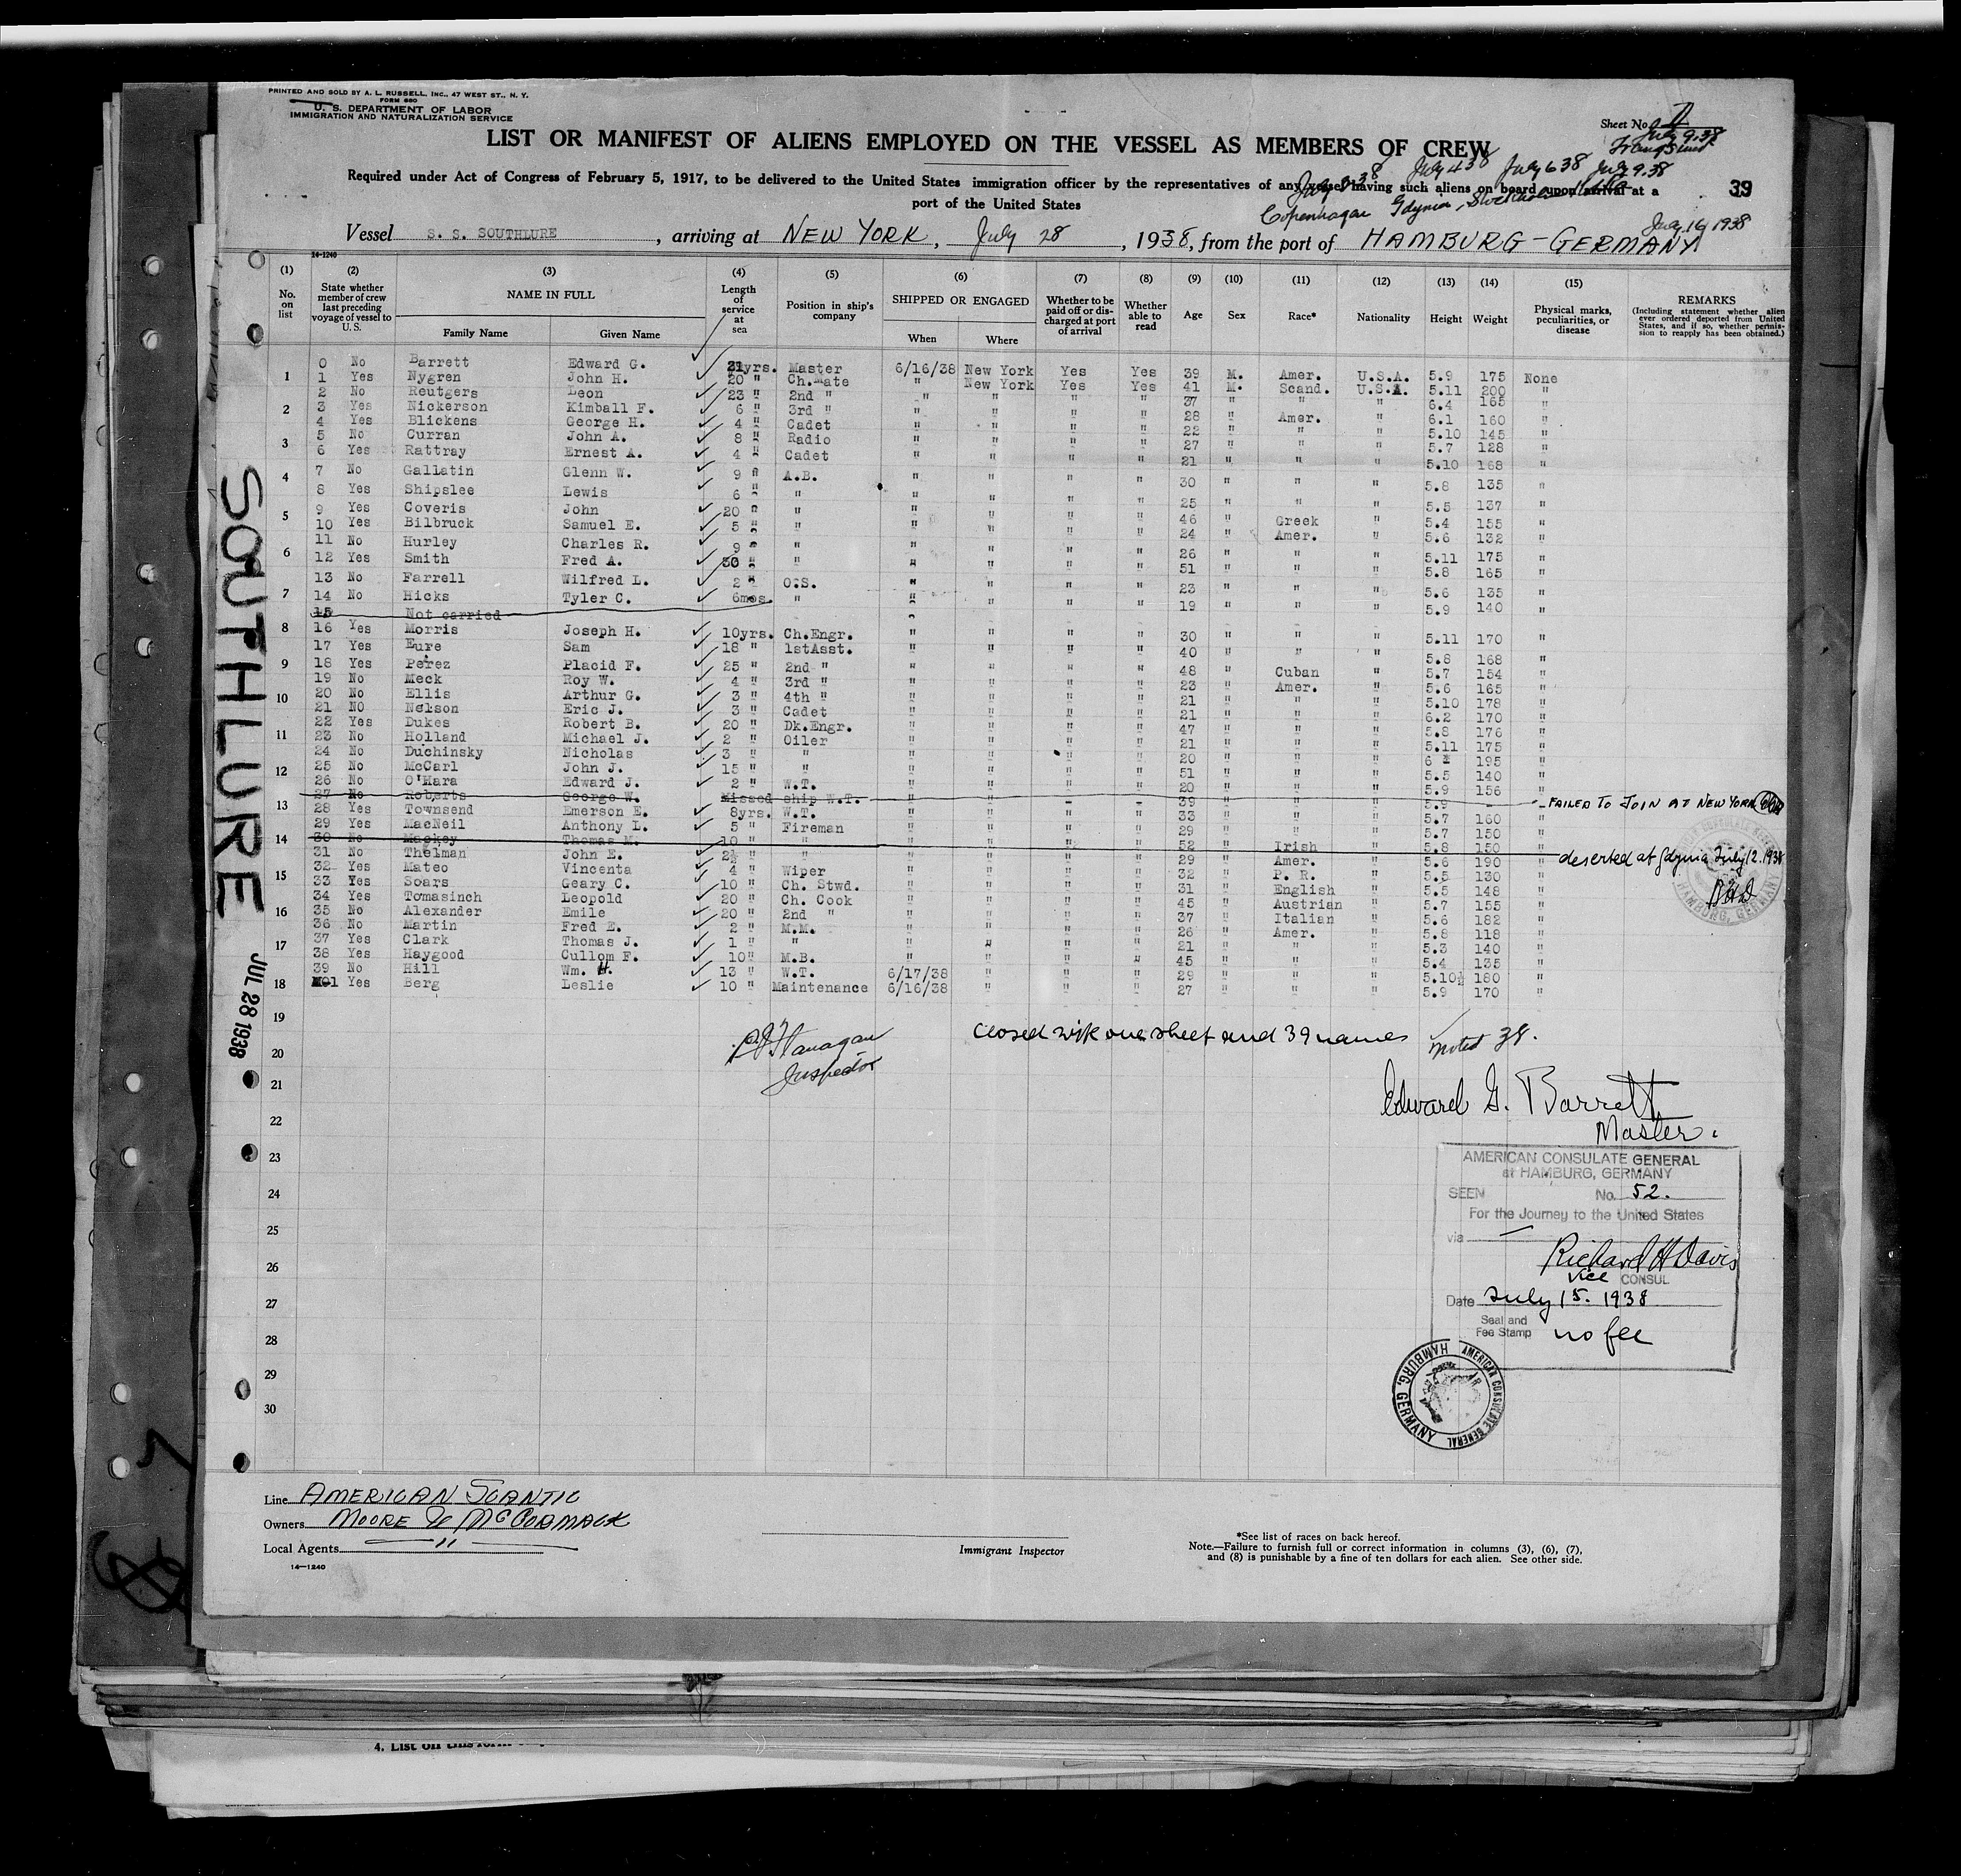 PRINTED AND SOLD BY A. L. RUSSELL, INC., 47 WEST ST., N. Y.
FORM 680
U. S. DEPARTMENT OF LABOR
IMMIGRATION AND NATURALIZATION SERVICE
Sheet No.
LIST OR MANIFEST OF ALIENS EMPLOYED ON THE VESSEL AS MEMBERS OF CREW
July 9.38
July 4 38 July 6 38 July 9.38
Required under Act of Congress of February 5, 1917, to be delivered to the United States immigration officer by the representatives of any vessel having such aliens on board upon arrival at a
port of the United States
39
Copenhagen Gdynia, Stockholm
July 16 1938
Vessel S. S. SOUTHLURE, arriving at NEW YORK, July 28, 1938, from the port of HAMBURG-GERMANY
14-1240
(1) (2) (3) (4) (5) (6) (7) (8) (9) (10) (11) (12) (13) (14) (15)
No. on list
State whether member of crew last preceding voyage of vessel to U. S.
NAME IN FULL
Family Name Given Name
Length of service at sea
Position in ship's company
SHIPPED OR ENGAGED
When Where
Whether to be paid off or discharged at port of arrival
Whether able to read
Age
Sex
Race*
Nationality
Height
Weight
Physical marks, peculiarities, or disease
REMARKS
(Including statement whether alien ever ordered deported from United States, and if so, whether permission to reapply has been obtained.)
0 No Barrett Edward G. 21yrs. Master 6/16/38 New York Yes Yes 39 M. Amer. U.S.A. 5.9 175 None
1 Yes Nygren John H. 20 " Ch.Mate " New York Yes Yes 41 M. Scand. U.S.A. 5.11 200 "
2 No Reutgers Leon 23 " 2nd " " " " " 37 " " " 6.4 165 "
3 Yes Nickerson Kimball F. 6 " 3rd " " " " " 28 " Amer. " 6.1 160 "
4 Yes Blickens George H. 4 " Cadet " " " " 22 " " " 5.10 145 "
5 No Curran John A. 8 " Radio " " " " 27 " " " 5.7 128 "
6 Yes Rattray Ernest A. 4 " Cadet " " " " 21 " " " 5.10 168 "
7 No Gallatin Glenn W. 9 " A.B. " " " " 30 " " " 5.8 135 "
8 Yes Shipslee Lewis 6 " " " " " " 25 " " " 5.5 137 "
9 Yes Coveris John 20 " " " " " " 46 " Greek " 5.4 155 "
10 Yes Bilbruck Samuel E. 5 " " " " " " 24 " Amer. " 5.6 132 "
11 No Hurley Charles R. 9 " " " " " " 26 " " " 5.11 175 "
12 Yes Smith Fred A. 30 " " " " " " 51 " " " 5.8 165 "
13 No Farrell Wilfred L. 2 " O.S. " " " " 23 " " " 5.6 135 "
14 No Hicks Tyler C. 6mos. " " " " " 19 " " " 5.9 140 "
15 Not carried
16 Yes Morris Joseph H. 10yrs. Ch.Engr. " " " " 30 " " " 5.11 170 "
17 Yes Eure Sam 18 " 1stAsst. " " " " 40 " " " 5.8 168 "
18 Yes Perez Placid F. 25 " 2nd " " " " " 48 " Cuban " 5.7 154 "
19 No Meck Roy W. 4 " 3rd " " " " " 23 " Amer. " 5.6 165 "
20 No Ellis Arthur G. 3 " 4th " " " " " 21 " " " 5.10 178 "
21 NO Nelson Eric J. 3 " Cadet " " " " 21 " " " 6.2 170 "
22 Yes Dukes Robert B. 20 " Dk.Engr. " " " " 47 " " " 5.8 176 "
23 No Holland Michael J. 2 " Oiler " " " " 21 " " " 5.11 175 "
24 No Duchinsky Nicholas 3 " " " " " " 20 " " " 6 195 "
25 No McCarl John J. 15 " " " " " " 51 " " " 5.5 140 "
26 No O'Hara Edward J. 2 " W.T. " " " " 20 " " " 5.9 156 "
27 No Roberts George W. Missed ship W.T. " " - - 39 " " " 5.9 - " FAILED TO JOIN AT NEW YORK
28 Yes Townsend Emerson E. 8yrs. W.T. " " " " 33 " " " 5.7 160 "
29 Yes MacNeil Anthony L. 5 " Fireman " " " " 29 " " " 5.7 150 "
30 No Mackey Thomas M. 10 " " " " " " 52 " Irish " 5.8 150 " deserted at Gdynia July 12. 1938
31 No Thelman John E. 2½ " " " " " " 29 " Amer. " 5.6 190 "
32 Yes Mateo Vincenta 4 " Wiper " " " " 32 " P. R. " 5.5 130 "
33 Yes Soars Geary C. 10 " Ch. Stwd. " " " " 31 " English " 5.5 148 "
34 Yes Tomasinch Leopold 20 " Ch. Cook " " " " 45 " Austrian " 5.7 155 "
35 No Alexander Emile 20 " 2nd " " " " " 37 " Italian " 5.6 182 "
36 No Martin Fred E. 2 " M.M. " " " " 26 " Amer. " 5.8 118 "
37 Yes Clark Thomas J. 1 " " " " " " 21 " " " 5.3 140 "
38 Yes Haygood Cullom F. 10 " M.B. " " " " 45 " " " 5.4 135 "
39 No Hill Wm. H. 13 " W.T. 6/17/38 " " " 29 " " " 5.10½ 180 "
Yes Berg Leslie 10 " Maintenance 6/16/38 " " " 27 " " " 5.9 170 "
1
2
3
4
5
6
7
8
9
10
11
12
13
14
15
16
17
18
19
20
21
22
23
24
25
26
27
28
29
30
SOUTHLURE
JUL 28 1938
Flanagan
Inspector
Closed with one sheet and 39 names
noted 38.
Edward G. Barrett
Master.
AMERICAN CONSULATE GENERAL
at HAMBURG, GERMANY
SEEN No. 52.
For the Journey to the United States
via
Richard H Davis
Vice CONSUL
Date July 15. 1938
Seal and
Fee Stamp no fee
AMERICAN CONSULATE GENERAL HAMBURG, GERMANY
HAMBURG, GERMANY
Line AMERICAN SCANTIC
Owners MOORE & McCORMACK
Local Agents "
14-1240
Immigrant Inspector
*See list of races on back hereof.
Note.—Failure to furnish full or correct information in columns (3), (6), (7),
and (8) is punishable by a fine of ten dollars for each alien. See other side.
4. List on this form